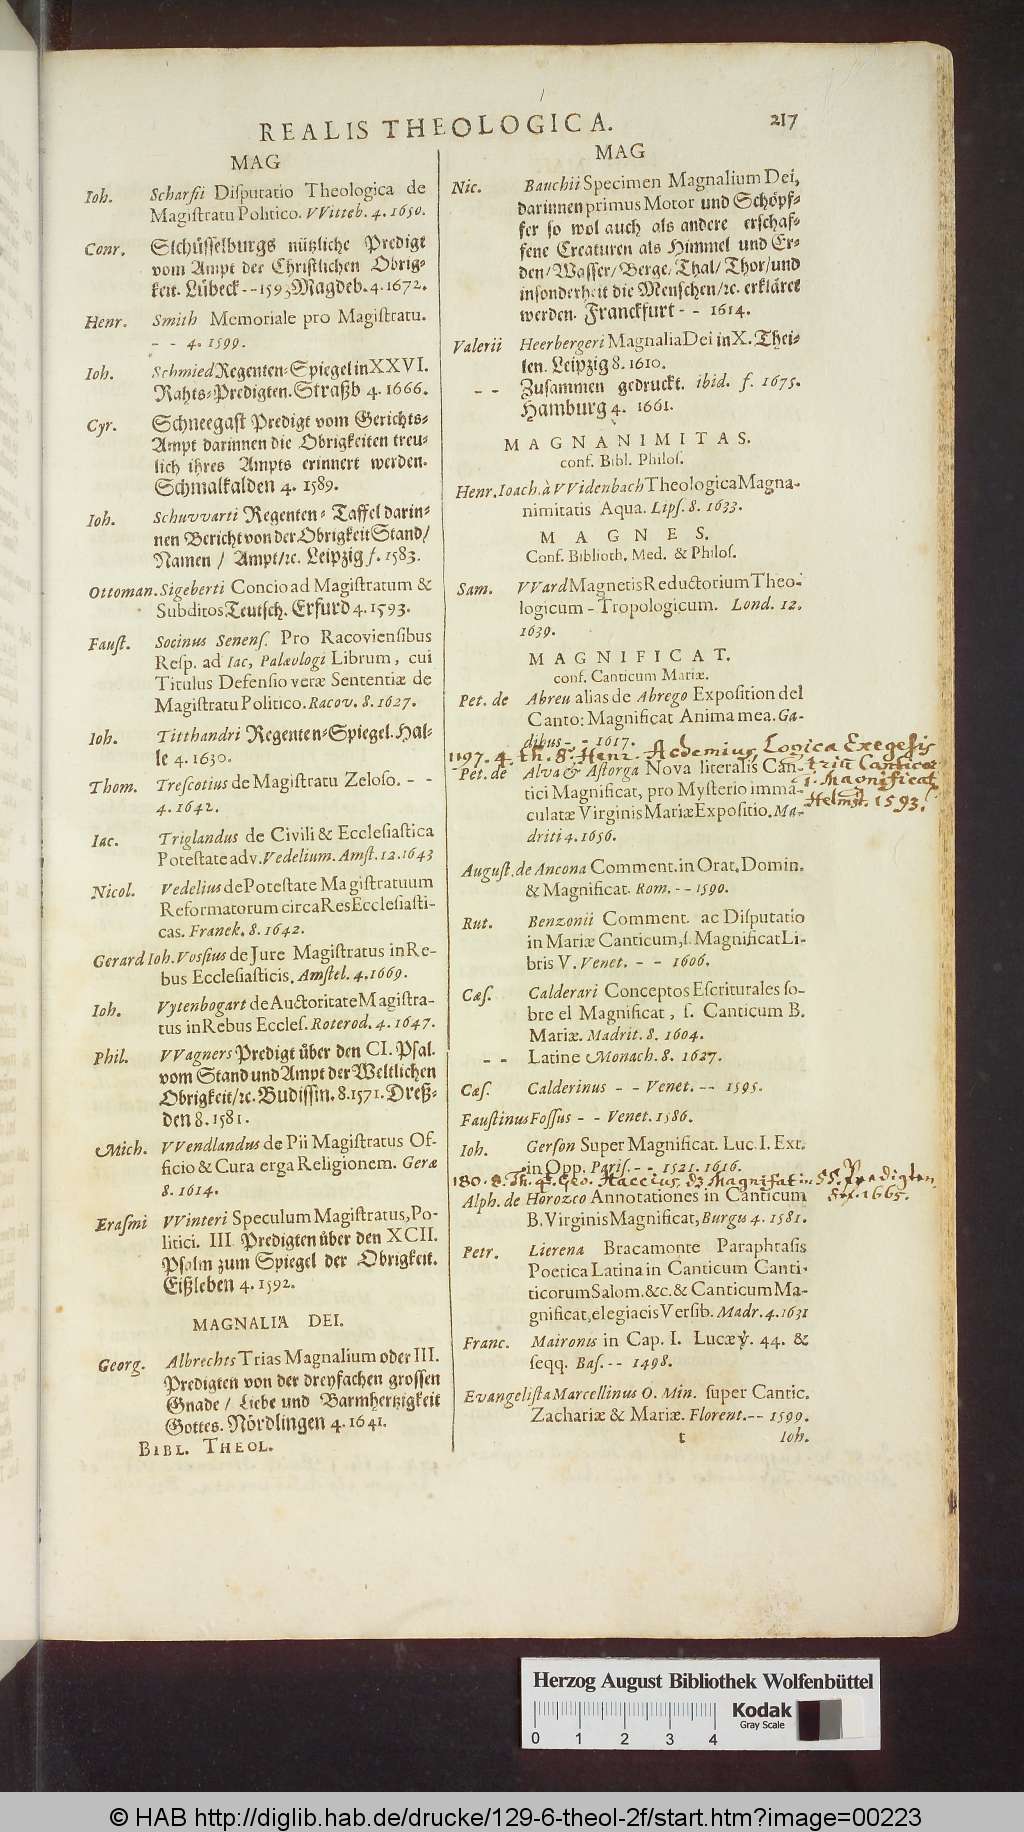 REALIS THEOLOGICA.
217
MAG
Ioh. Scharfii Diſputatio Theologica de
Magiſtratu Politico. VVitteb. 4. 1650.
Conr. Schlüſſelburgs nützliche Predigt
vom Ampt der Chriſtlichen Obrig-
keit. Lübeck - - 1593 Magdeb. 4. 1672.
Henr. Smith Memoriale pro Magiſtratu.
- - 4. 1599.
Ioh. Schmied Regenten-Spiegel in XXVI.
Rahts-Predigten. Straßb 4. 1666.
Cyr. Schneegaſt Predigt vom Gerichts-
Ampt darinnen die Obrigkeiten treu-
lich ihres Ampts erinnert werden.
Schmalkalden 4. 1589.
Ioh. Schuvvarti Regenten-Taffel darin-
nen Bericht von der Obrigkeit Stand/
Namen / Ampt/ ꝛc. Leipzig f. 1583.
Ottoman. Sigeberti Concio ad Magiſtratum &
Subditos Teutſch. Erfurd 4. 1593.
Fauſt. Socinus Senenſ. Pro Racovienſibus
Reſp. ad Iac, Palæologi Librum, cui
Titulus Defenſio veræ Sententiæ de
Magiſtratu Politico. Racov. 8. 1627.
Ioh. Titthandri Regenten-Spiegel. Hal-
le 4. 1630.
Thom. Treſcotius de Magiſtratu Zeloſo. - -
4. 1642.
Iac. Triglandus de Civili & Eccleſiaſtica
Poteſtate adv. Vedelium. Amſt. 12. 1643
Nicol. Vedelius de Poteſtate Magiſtratuum
Reformatorum circa Res Eccleſiaſti-
cas. Franek. 8. 1642.
Gerard Ioh. Voſſius de Jure Magiſtratus in Re-
bus Eccleſiaſticis. Amſtel. 4. 1669.
Ioh. Vytenbogart de Auctoritate Magiſtra-
tus in Rebus Eccleſ. Roterod. 4. 1647.
Phil. VVagners Predigt über den CI. Pſal.
vom Stand und Ampt der Weltlichen
Obrigkeit/ ꝛc. Budiſſin. 8. 1571. Dreß-
den 8. 1581.
Mich. VVendlandus de Pii Magiſtratus Of-
ficio & Cura erga Religionem. Geræ
8. 1614.
Eraſmi VVinteri Speculum Magiſtratus, Po-
litici. III Predigten über den XCII.
Pſalm zum Spiegel der Obrigkeit.
Eißleben 4. 1592.
MAGNALIA DEI.
Georg. Albrechts Trias Magnalium oder III.
Predigten von der dreyfachen groſſen
Gnade / Liebe und Barmhertzigkeit
Gottes. Nördlingen 4. 1641.
BIBL. THEOL.
MAG
Nic. Bauchii Specimen Magnalium Dei,
darinnen primus Motor und Schöpf-
fer ſo wol auch als andere erſchaf-
fene Creaturen als Himmel und Er-
den/ Waſſer/ Berge/ Thal/ Thor/ und
inſonderheit die Menſchen/ ꝛc. erkläret
werden. Franckfurt - - 1614.
Valerii Heerbergeri Magnalia Dei in X. Thei-
len. Leipzig 8. 1610.
- - Zuſammen gedruckt. ibid. f. 1675.
Hamburg 4. 1661.
MAGNANIMITAS.
conf. Bibl. Philoſ.
Henr. Ioach. à VVidenbach Theologica Magna-
nimitatis Aqua. Lipſ. 8. 1633.
MAGNES.
Conf. Biblioth. Med. & Philoſ.
Sam. VVard Magnetis Reductorium Theo-
logicum - Tropologicum. Lond. 12.
1639.
MAGNIFICAT.
conf. Canticum Mariæ.
Pet. de Abreu alias de Abrego Expoſition del
Canto: Magnificat Anima mea. Ga-
dibus - - 1617.
1197. 4. th. 8. Henr. Achemius Logica Exegeſis
triu Canticor
1. Magnificat
Helmſt. 1593.
Pet. de Alva & Aſtorga Nova literalis Can-
tici Magnificat, pro Myſterio imma-
culatæ Virginis Mariæ Expoſitio. Ma-
driti 4. 1656.
Auguſt. de Ancona Comment. in Orat. Domin.
& Magnificat. Rom. - - 1590.
Rut. Benzonii Comment. ac Diſputatio
in Mariæ Canticum, ſ. Magnificat Li-
bris V. Venet. - - 1606.
Cæſ. Calderari Conceptos Eſcriturales ſo-
bre el Magnificat, ſ. Canticum B.
Mariæ. Madrit. 8. 1604.
- - Latine Monach. 8. 1627.
Cæſ. Calderinus - - Venet. - - 1595.
Fauſtinus Foſſus - - Venet. 1586.
Ioh. Gerſon Super Magnificat. Luc. I. Ext.
in Opp. Pariſ. - - 1521. 1616.
180. 8. Th. 4. Geo. Haccius. dz Magnificat in 55. Predigten
1665.
Alph. de Horozco Annotationes in Canticum
B. Virginis Magnificat, Burgis 4. 1581.
Petr. Lierena Bracamonte Paraphraſis
Poetica Latina in Canticum Canti-
ticorum Salom. &c. & Canticum Ma-
gnificat, elegiacis Verſib. Madr. 4. 1631
Franc. Maironis in Cap. I. Lucæ ỳ. 44. &
ſeqq. Baſ. - - 1498.
Evangeliſta Marcellinus O. Min. ſuper Cantic.
Zachariæ & Mariæ. Florent. - - 1599.
t
Ioh.
Herzog August Bibliothek Wolfenbüttel
0 1 2 3 4
Kodak
Gray Scale
© HAB http://diglib.hab.de/drucke/129-6-theol-2f/start.htm?image=00223